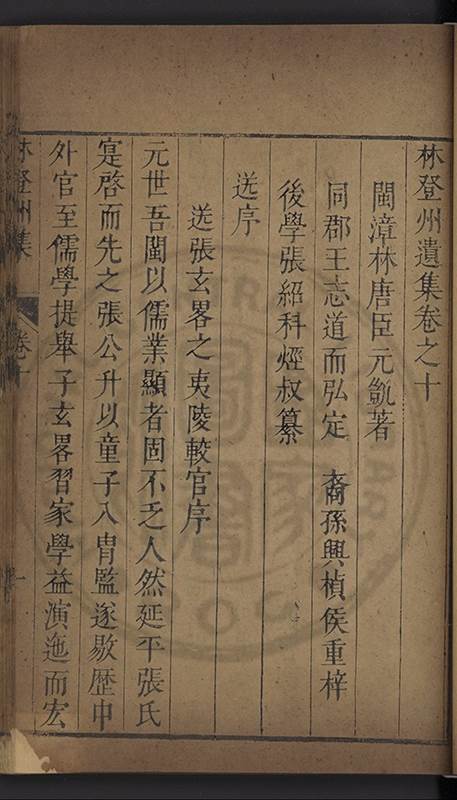 林登州遺集卷之十
閩漳林唐臣元凱著
同郡王志道而弘定 裔孫興楨侯重梓
後學張紹科烴叔纂
送序
送張玄畧之夷陵較官序
元世吾閩以儒業顯者固不乏人然延平張氏
寔啓而先之張公升以童子入胄監遂敭歴中
外官至儒學提舉子玄畧習家學益演迤而宏
林登州集 卷十 一